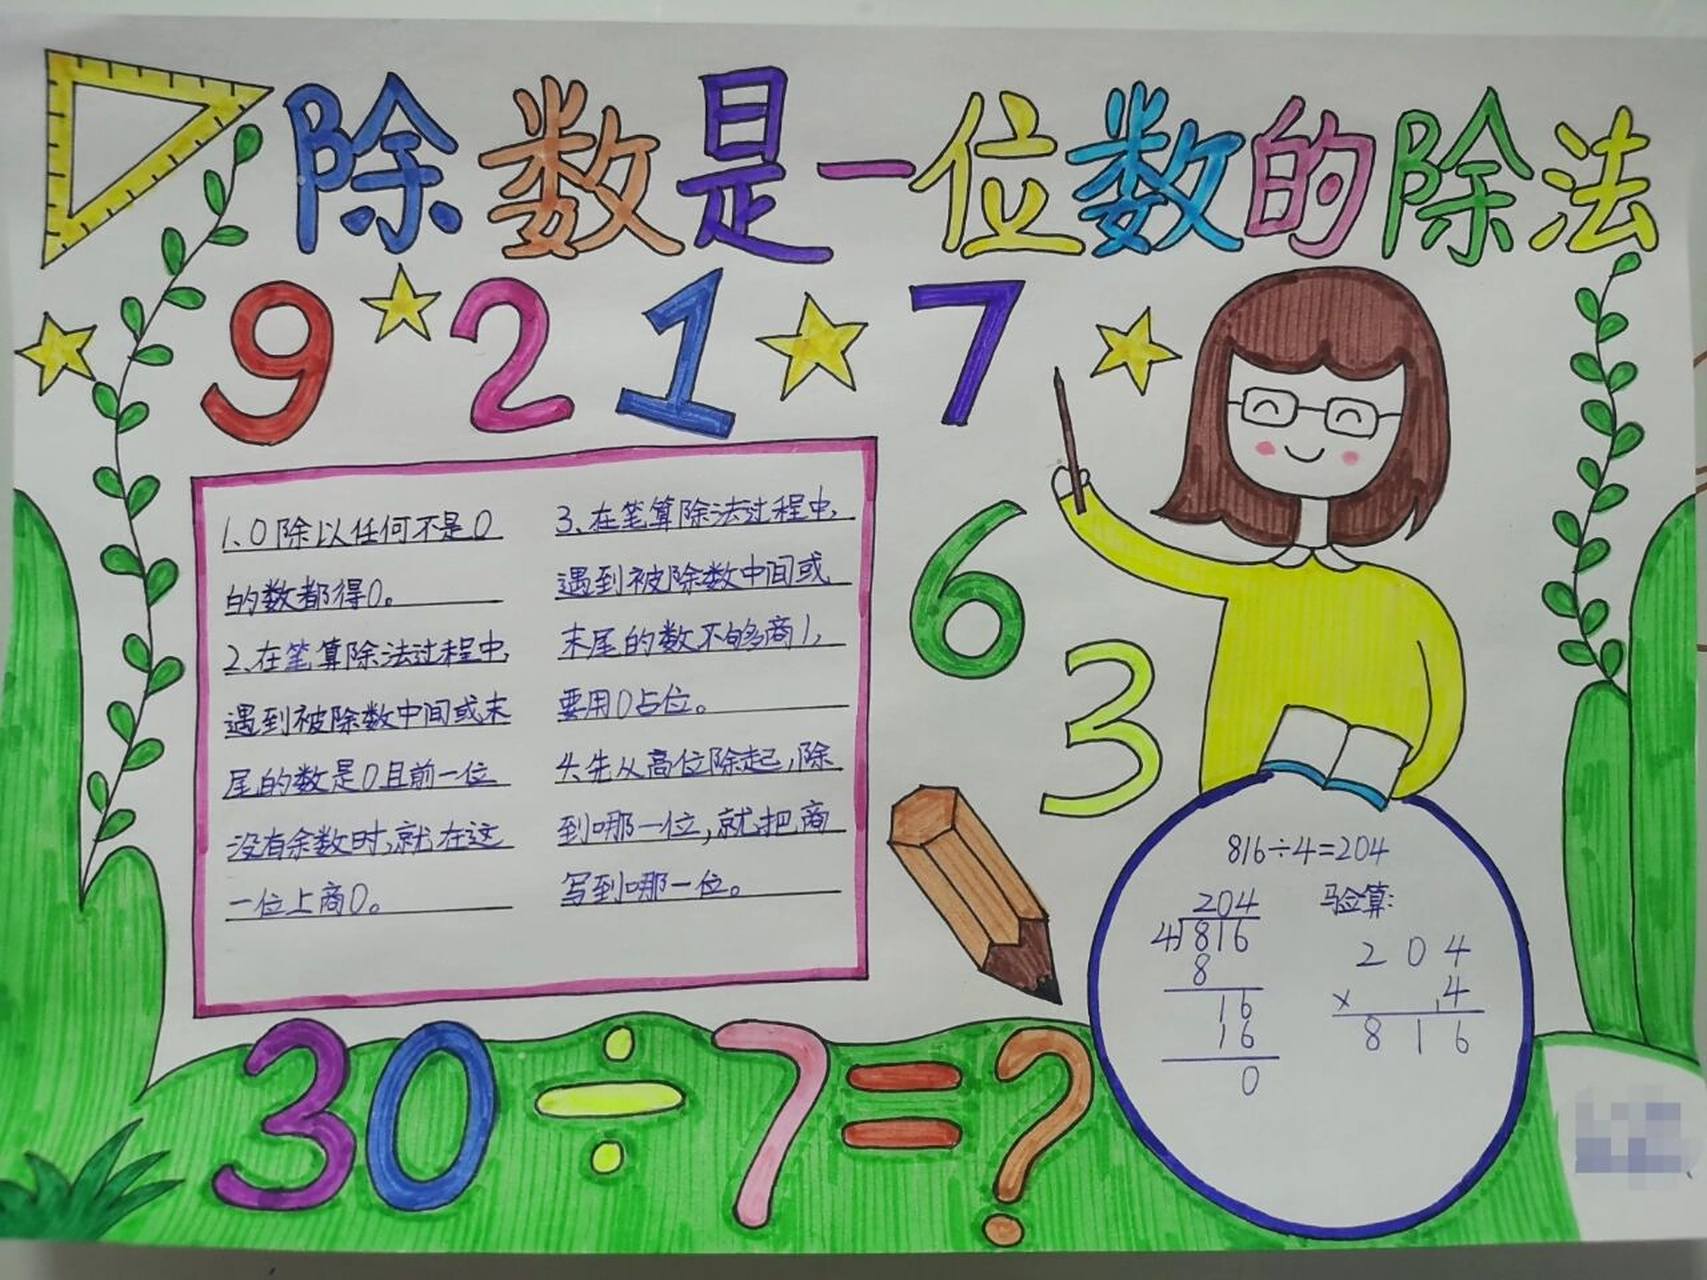 除数是一位数的除法
9 2 1 7
1、0除以任何不是0
的数都得0。
2、在笔算除法过程中,
遇到被除数中间或末
尾的数是0且前一位
没有余数时,就在这
一位上商0。
3、在笔算除法过程中,
遇到被除数中间或
末尾的数不够商1,
要用0占位。
4、先从高位除起,除
到哪一位,就把商
写到哪一位。
6
3
816÷4=204
204
4)816
8
16
16
0
验算:
204
×4
816
30÷7=?